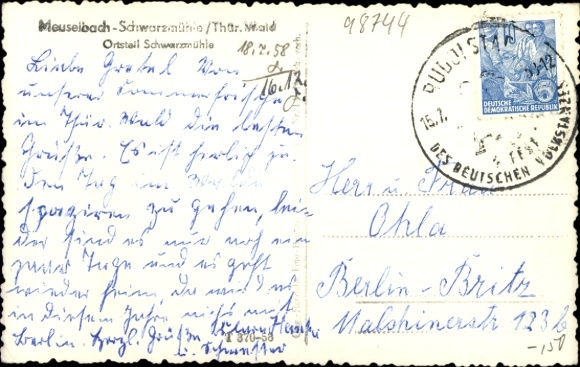 Meuselbach-Schwarzmühle/Thür. Wald
Ortsteil Schwarzmühle
98744
18.7.58
16.12.
Liebe Gretel Von
unserer Sommerfrische
im Thür. Wald die besten
Grüße. Es ist herlich zu
Den Tag im Walde
spaziren zu gehen, lei-
der sind es nur noch ein
paar Tage und es geht
wieder heim, da wird es
in diesem Jahre nichts mit
Berlin. Herzl. Grüße
u. Schwester
T 870-58
RUDOLSTADT
15.7.
-12
FEST
DES DEUTSCHEN VOLKSTANZES
DEUTSCHE
DEMOKRATISCHE REPUBLIK
Herr u. Frau
Ohla
Berlin-Britz
Malchinerstr 123b
-,50